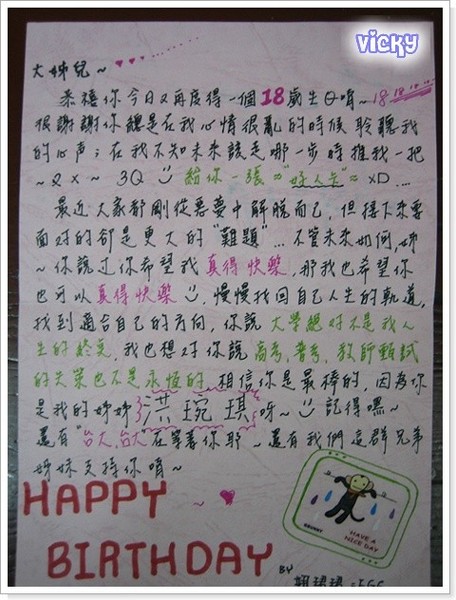 vicky
大姊兒~
恭禧你今日又再度得一個18歲生日唷~18 18 18 18
很謝謝你總是在我心情很亂的時候聆聽我
的心声;在我不知未來該走哪一步時推我一把
~2x~ 3Q 給你一張≈"好人卡"≈xD....
最近大家都剛從惡夢中解脫而已,但接下來要
面對的卻是更大的"難題"...不管未來如何,姊
~你說过你希望我真得快樂,那我也希望你
也可以真得快樂,慢慢找回自己人生的軌道,
找到適合自己的方向,你說大學絕对不是我人
生的終点,我也想对你說高考、普考、教師甄試
的失策也不是永恆的,相信你是最棒的,因為你
是我的姊姊洪琬琪呀~ 記得嘿~
還有"台大、台大"在等著你耶~還有我們這群兄弟
姊妹支持你唷~
HAPPY
BIRTHDAY
HAVE A
NICE DAY
BY